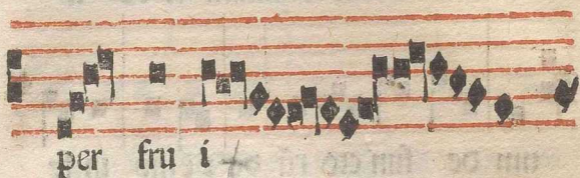 per fru i